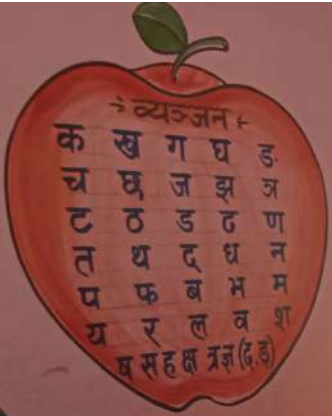 ÷ व्यञ्जन ÷
क ख ग घ ङ
च छ ज झ ञ
ट ठ ड ढ ण
त थ द ध न
प फ ब भ म
य र ल व श
ष स ह क्ष त्र ज्ञ (ढ़, ड़)